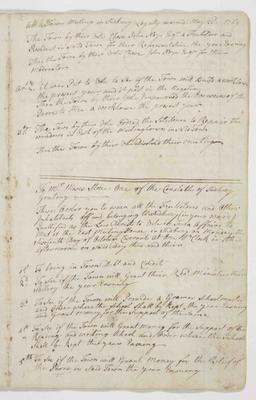 At a Town Meeting in Sudbury Legally warned May 22d 1769
The Town by their vote Chose John Noyes Esqr a Freeholder and
Resident in said Town for their Representative the year Ensuing
Then the Town by their vote Chose John Noyes Esqr for their
Moderator
It was Put to vote to See if the Town will build a workhouse
the present year and it past in the Negative
Then the Town by their vote the Overseers of the
Poor to Hire a workhouse the present year
The Town by their vote the Selectmen to Repair the
windows in Part of the Meetinghouse in said Town
Then the Town by their vote the meeting
To Mr Moore One of the Constables of Sudbury
Greeting
These Require you to warn all the Freeholders and other
Inhabitants
Qualified as the Law Directs to
that at the East Meeting House in Sudbury on Monday the
Day of October Currant at one of the Clock in the
afternoon on said Day then and there
1st To bring in Town Debt and Credit
2d To See if the Town will Grant their Revd Ministers their
the year Ensuing
3d To See if the Town will Provide a Gramer Schoolmaster
and Order where the School Shall be Kept the year Ensuing
and Grant money for the Support of the same
4th To See if the Town will Grant money for the Support of the
Reading and writing School and order where the School
Shall be Kept the year Ensuing
5th To See if the Town will Grant Money for the Relief of
the Poore in said Town the year Ensuing